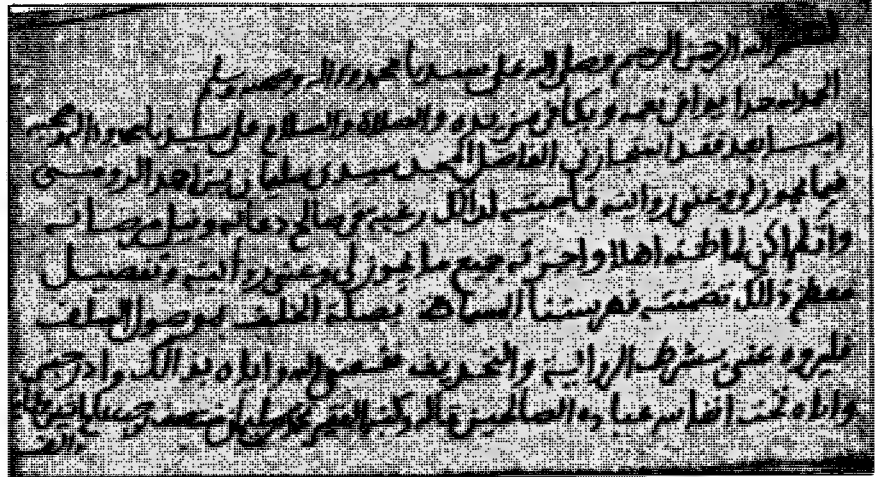 بسم الله الرحمن الرحيم وصلى الله على سيدنا محمد وءاله وصحبه وسلم
الحمد لله حمدا يوافي نعمه ويكافئ مزيده والصلاة والسلام على سيدنا محمد وءاله وصحبه
اما بعد فقد استجازني الفاضل سيدي سليمان بن احمد
فيما يجوز لي وعني روايته فأجبته لذالك رغبة في صالح دعائه ونيل مرضاته
وان لم اكن لما ظنه اهلا واجزته جميع ما يجوز لي وعني روايته وتفصيل
معظم ذلك تضمنته فهرستنا صلة الخلف بموصول السلف
فليروه عني بشرط الرواية والله واياه بذالك وادرجني
واياه تحت انفاس عباده الصالحين قاله وكتبه الفقير محمد بن سليمان